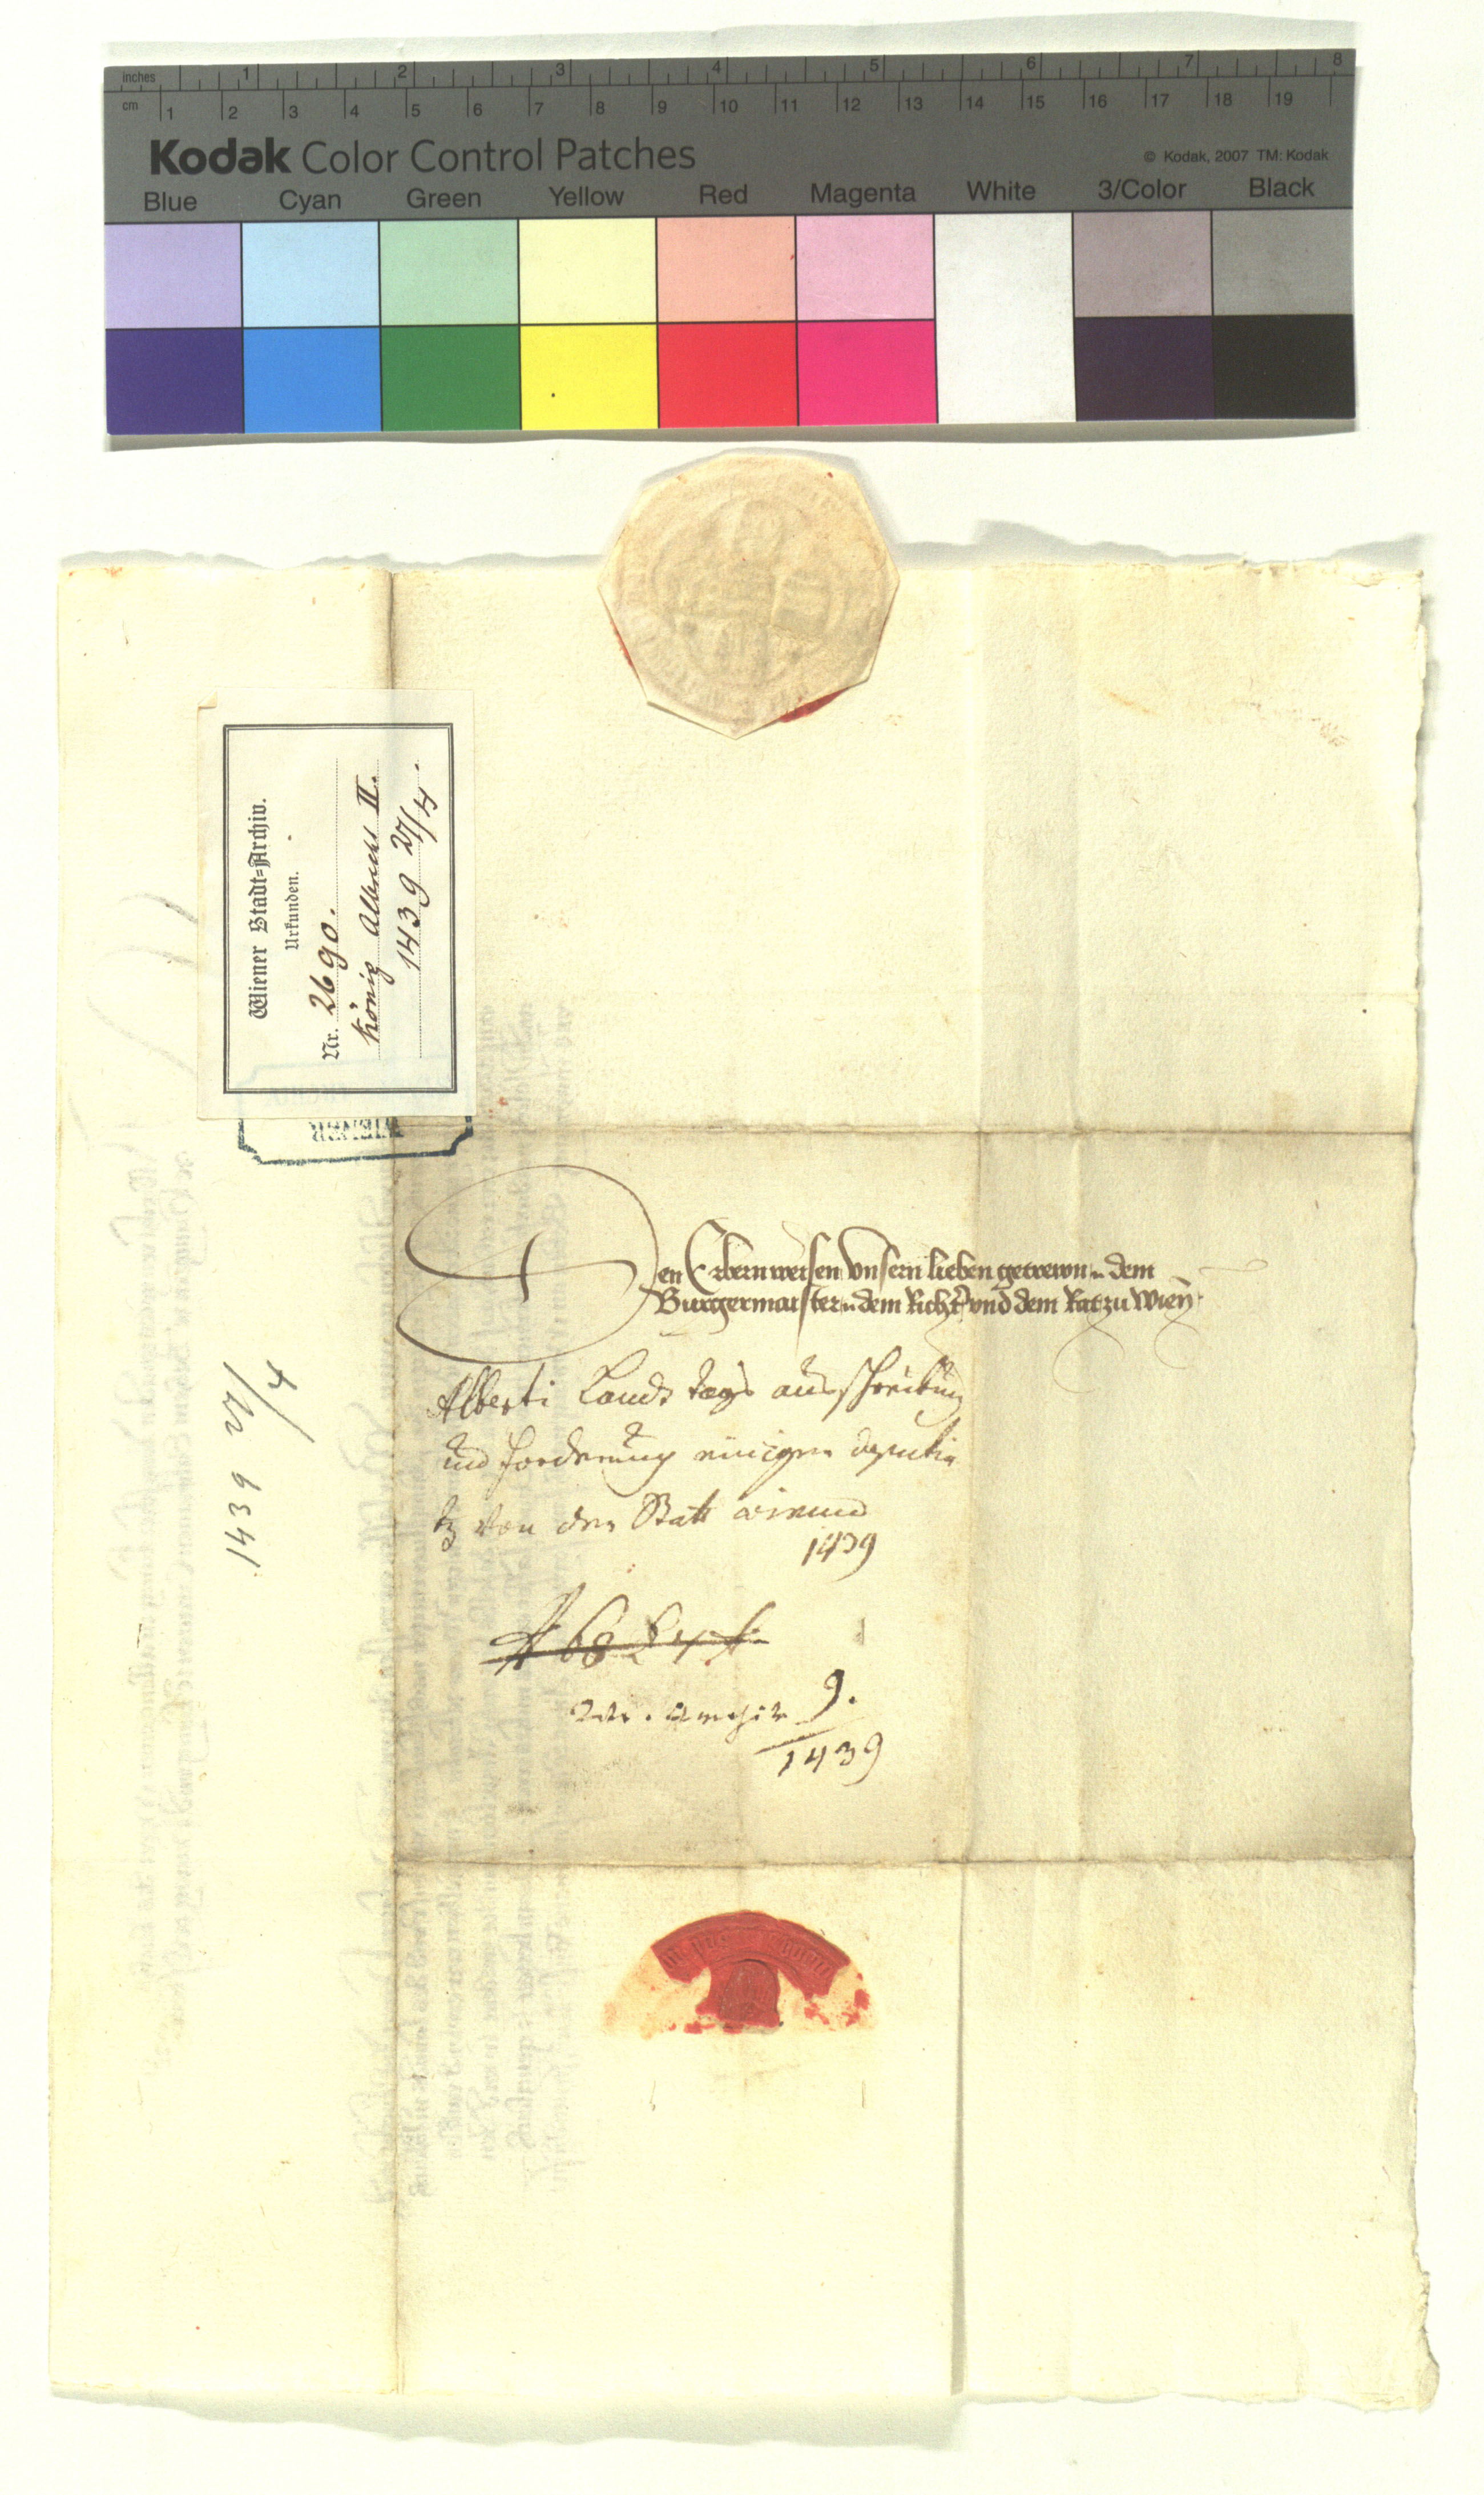 inches 1 2 3 4 5 6 7 8
cm 1 2 3 4 5 6 7 8 9 10 11 12 13 14 15 16 17 18 19
Kodak Color Control Patches
© Kodak, 2007 TM: Kodak
Blue Cyan Green Yellow Red Magenta White 3/Color Black
Wiener Stadt-Archiv.
Urkunden.
Nr. 2690.
König Albrecht II.
1439 27/4.
WIENER
Den Erbern weisen vnsern lieben getrewn dem
Burgermaister dem Richt' vnd dem Rat zu Wienn
Alberti Landtags ausschreibung
und forderung einiger deputir
von der Statt
1439
1439 27/4
9.
1439